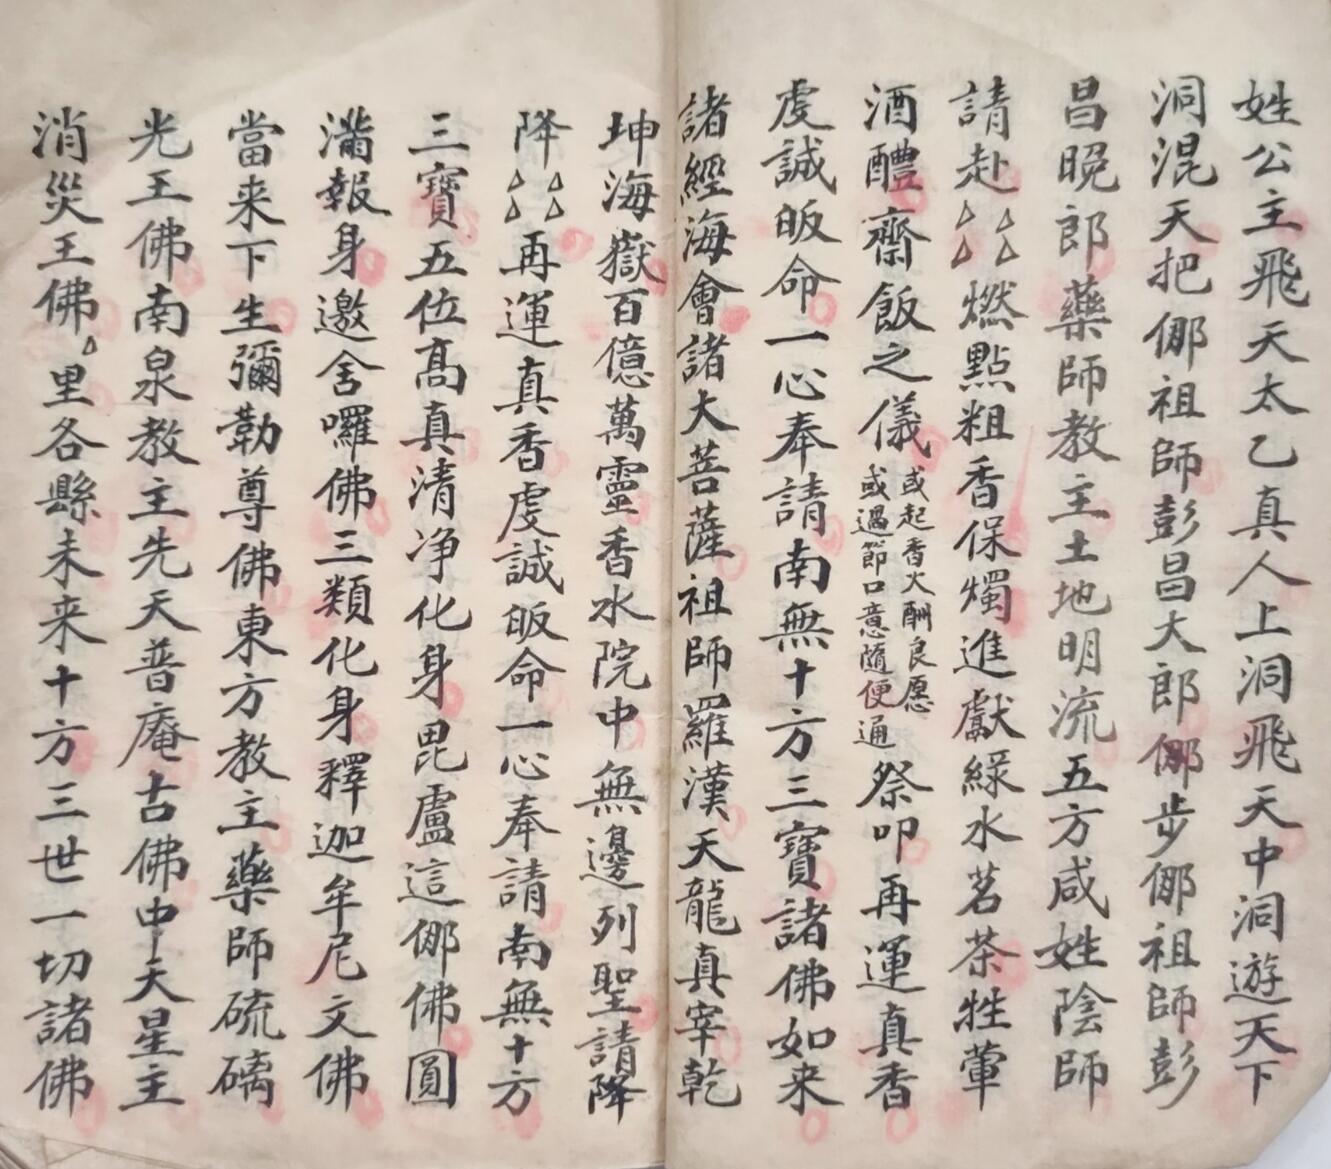 姓公主飛天太乙真人上洞飛天中洞遊天下
洞混天把倻祖師彭昌大郎倻步倻祖師彭
昌晚郎藥師教主土地明流五方咸姓陰師
請赴△△△△燃點粗香保燭進獻綠水茗茶牲葷
酒醴齋飯之儀
或起香火酬良愿
或過節口意隨便通
祭叩再運真香
虔誠皈命一心奉請南無十方三寶諸佛如来
諸經海會諸大菩薩祖師羅漢天龍真宰乾
坤海嶽百億萬靈香水院中無邊列聖請降
降△△△△再運真香虔誠皈命一心奉請南無十方
三寶五位髙真清净化身毘盧這倻佛圓
滿報身邀舍囉佛三類化身釋迦牟尼文佛
當来下生彌勒尊佛東方教主藥師硫璃
光王佛南泉教主先天普庵古佛中天星主
消災王佛△里各縣未来十方三世一切諸佛